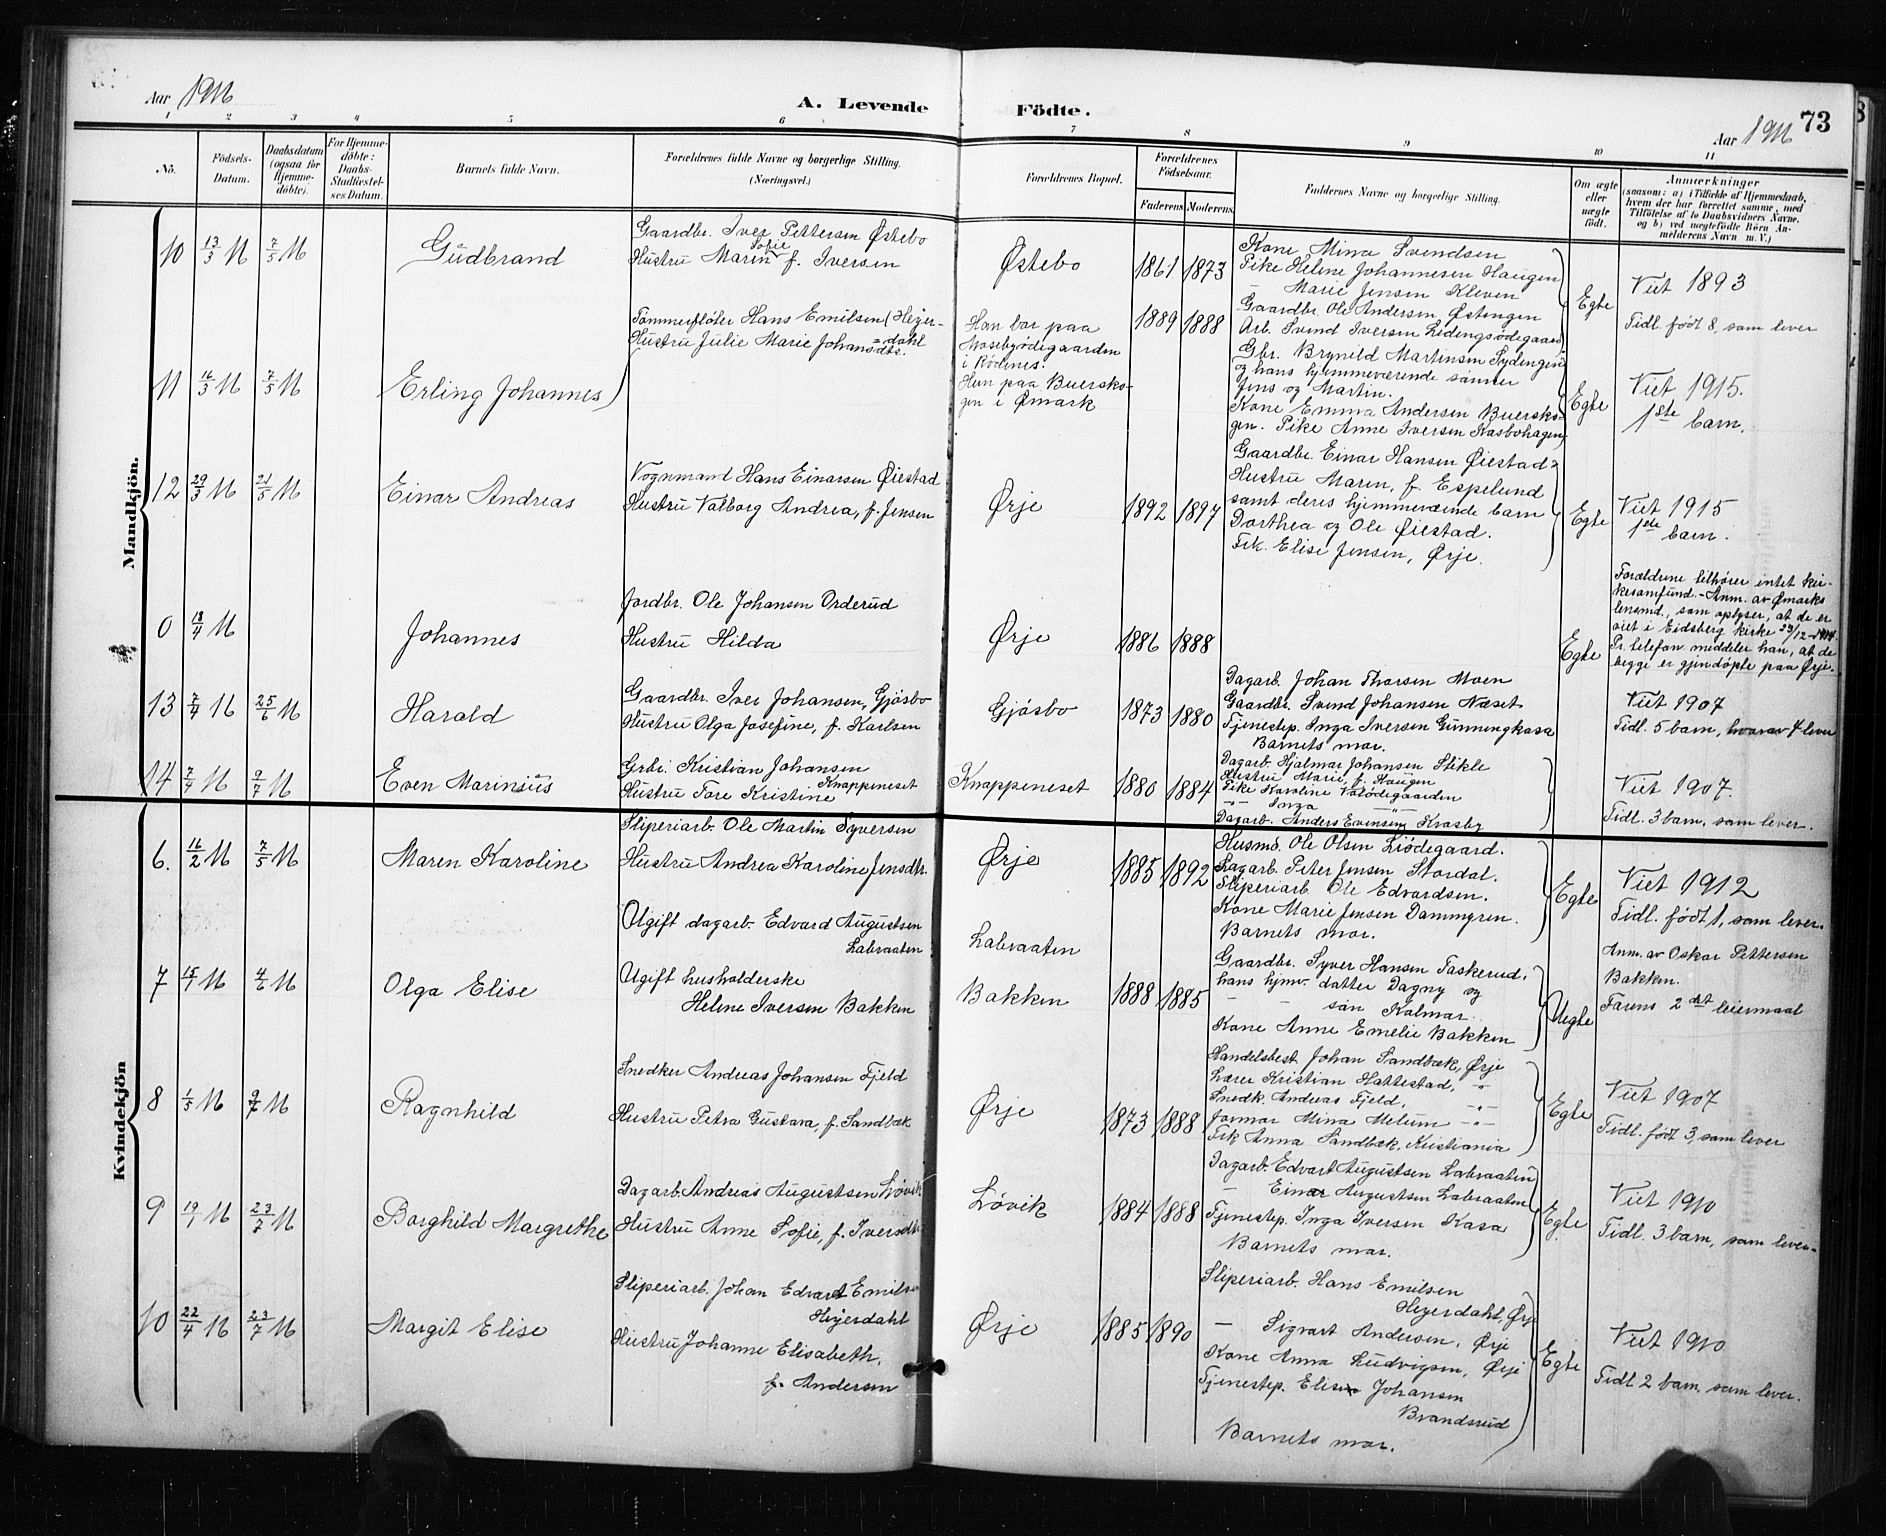 Aar 1916
A. Levende
Födte.
Aar 1916
73
1 2 3 4 5 6 7 8 9 10 11
No.
Födsels-Datum.
Daabsdatum (ogsaa for Hjemmedöbte).
For Hjemmedöbte: Daabs-Stadfæstelses Datum.
Barnets fulde Navn.
Forældrenes fulde Navne og borgerlige Stilling.
(Næringsvei.)
Forældrenes Bopæl.
Forældrenes Födselsaar.
Faderens
Moderens
Faddernes Navne og borgerlige Stilling.
Om ægte eller uægte födt.
Anmærkninger
(saasom: a) i Tilfælde af Hjemmedaab, hvem der har forrettet samme, med Tilföielse af to Daabsvidners Navne, og b) ved uægtefödte Börn Anmelderens Navn m. V.)
Mandkjön.
10 13/3 16 7/5 16
Gudbrand
Gaardbr. Iver Pettersen Østebo
Hustru Maren Sofie f. Iversen
Østebo
1861 1873
Kone Mina Svendsen
Pike Helene Johannesen Haugen
— Marie Jensen Kleven
Gaardbr. Ole Andersen Østengen
Arb. Svend Iversen Lidengsødegaard
Egte
Viet 1893
Tidl. født 8, som lever
11 16/3 16 7/5 16
Erling Johannes
Tømmerfløter Hans Emilsen (Heyerdahl
Hustru Julie Marie Johansdtr.
Han bor paa
Mosebyødegaarden
i Rødenes.
Hun paa Buerskogen i Ømark
1889 1888
Gbr. Brynild Martinsen Sydengen
og hans hjemmeværende sønner
Jens og Martin.
Kone Emma Andersen Buerskogen.
Pike Anne Iversen Kasbohagen
Egte
Viet 1915.
1ste barn.
12 29/3 16 21/5 16
Einar Andreas
Vognmand Hans Einarsen Øiestad
Hustru Valborg Andrea, f. Jensen
Ørje
1892 1897
Gaardbr. Einar Hansen Øiestad
Hustru Maren, f. Espelund
samt deres hjemmeværende barn
Dorthea og Ole Øiestad.
Frk. Elise Jensen, Ørje.
Egte
Viet 1915
1ste barn.
0 18/4 16
Johannes
Jordbr. Ole Johansen Orderud
Hustru Hilda
Ørje
1886 1888
Egte
Forældrene tilhører intet kirkesamfund. - Anm. av Ømarks
lensmd., som oplyser, at de er
viet i Eidsberg kirke 23/12-1914.
Pr. telefon meddeler han, at de
begge er gjendøpte paa Ørje.
13 7/4 16 25/6 16
Harald
Gaardbr. Iver Johansen, Gjøsbo
Hustru Olga Josefine, f. Karlsen
Gjøsbo
1873 1880
Dagarb. Johan Thorsen Moen
Gaardbr. Svend Johansen Næset
Tjenestep. Inga Iversen Gunnengkasa
Barnets mor.
Viet 1907
Tidl. 5 barn, hvorav 4 lever
14 7/4 16 9/7 16
Even Marinius
Grbr. Kristian Johansen
Knappeneset
Hustru Tore Kristine
Knappeneset
1880 1884
Dagarb. Hjalmar Johansen Stikle
Hustru Marie, f. Haugen
Pike Karoline Vatødegaarden
-"- Inga -"-
Dagarb. Anders Evensen Krosby
Viet 1907.
Tidl. 3 barn, som lever.
Kvindekjön
6. 16/2 16 7/5 16
Maren Karoline
Sliperiarb. Ole Martin Syversen
Hustru Andrea Karoline Jensdtr.
Ørje
1885 1892
Husmd. Ole Olsen Liødegaard.
Dagarb. Peter Jensen Stordal.
Sliperiarb. Ole Edvardsen.
Kone Marie Jensen Dammyren.
Barnets mor.
Egte
Viet 1912
Tidl. født 1, som lever.
7 15/1 16 4/6 16
Olga Elise
Ugift dagarb. Edvard Augustsen
Labraaten
Ugift husholderske
Helene Iversen Bakken
Labraaten
Bakken
1888 1885
Gaardbr. Syver Hansen Taskerud,
hans hjmv. datter Dagny og
— — søn Kalmar.
Kone Anne Emelie Bakken
Uegte
Anm. av Oskar Pettersen
Bakken.
Farens 2det leiermaal
8 1/5 16 9/7 16
Ragnhild
Snedker Andreas Johansen Fjeld
Hustru Petra Gustava, f. Sandbæk
Ørje
1873 1888
Handelsbest. Johan Sandbæk, Ørje
Lærer Kristian Hattestad, -"-
Snedk. Andreas Fjeld, -"-
Jormor Mina Melum -"-
Frk Anna Sandbæk, Kristiania
Egte
Viet 1907
Tidl. født 3, som lever
9 19/1 16 23/7 16
Borghild Margrethe
Dagarb. Andreas Augustsen Løvik
Hustru Anne Sofie, f. Iversdtr.
Løvik
1884 1888
Dagarb. Edvart Augustsen Labraaten
— Einar Augustsen Labraaten
Tjenestep. Inga Iversen Kasa
Barnets mor.
Egte
Viet 1910
Tidl. 3 barn, som lever.
10 22/4 16 23/7 16
Margit Elise
Sliperiarb. Johan Edvard Emilsen
Heyerdahl
Hustru Johanne Elisabeth,
f. Andersen
Ørje
1885 1890
Sliperiarb. Hans Emilsen
Heyerdahl, Ørje
— Sigvart Andersen, Ørje
Kone Anna Ludvigsen, Ørje
Tjenestep. Elise Johansen
Brandsrud
Barnets mor.
Egte
Viet 1910
Tidl 2 barn, som lever.